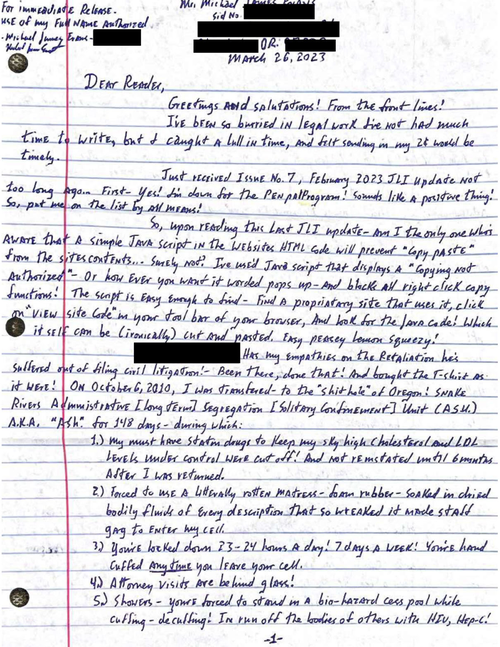 For immediate Release.
use of my Full Name Authorized
- Michael James Evans -
Mr. Michael James Evans
Sid No.
OR.
March 26, 2023
Dear Reader,
Greetings and salutations! From the front lines!
I've been so burried in legal work I've not had much
time to write, but I caught a lull in time, and felt sending in my 2¢ would be
timely.
Just received Issue No. 7, February 2023 JLI update not
too long ago... First- Yes! I'm down for the Pen pal Program! Sounds like a positive thing!
So, put me on the list by all means!
So, upon reading this last JLI update- am I the only one who's
aware that a simple Java script in the websites HTML code will prevent "copy paste"
from the sites contents... surely not? I've used Java script that displays a "Copying not
Authorized"- Or how ever you want it worded pops up- and blocks all right click copy
functions! The script is easy enough to find- find a propriatary site that uses it, click
on "view site code" in your tool bar of your browser, and look for the Java code! Which
it self can be (ironically) cut and pasted. Easy peasey lemon squeezy!
Has my empathies on the Retaliation he's
suffered out of filing civil litigation!- Been there, done that! And bought the T-shirt as
it were! On October 6, 2010, I was transfered to the "shit hole" of Oregon! Snake
Rivers Administrative [long term] Segregation [Solitary Confinement] Unit (A.S.U.)
A.K.A. "Ash" for 148 days- during which:
1.) My must have statin drugs to keep my sky high Cholesterol and LDL
levels under control were cut off! And not reinstated until 6 months
After I was returned.
2.) Forced to use a litterally rotten matress- foam rubber- soaked in dried
bodily fluids of every description that so wreaked it made staff
gag to enter my cell.
3.) You're locked down 23-24 hours a day! 7 days a week! You're hand
cuffed anytime you leave your cell.
4.) Attorney visits are behind glass!
5.) Showers- youre forced to stand in a bio-hazard cess pool while
cuffing - decuffing! In run off the bodies of others with HIV, Hep-C!
-1-